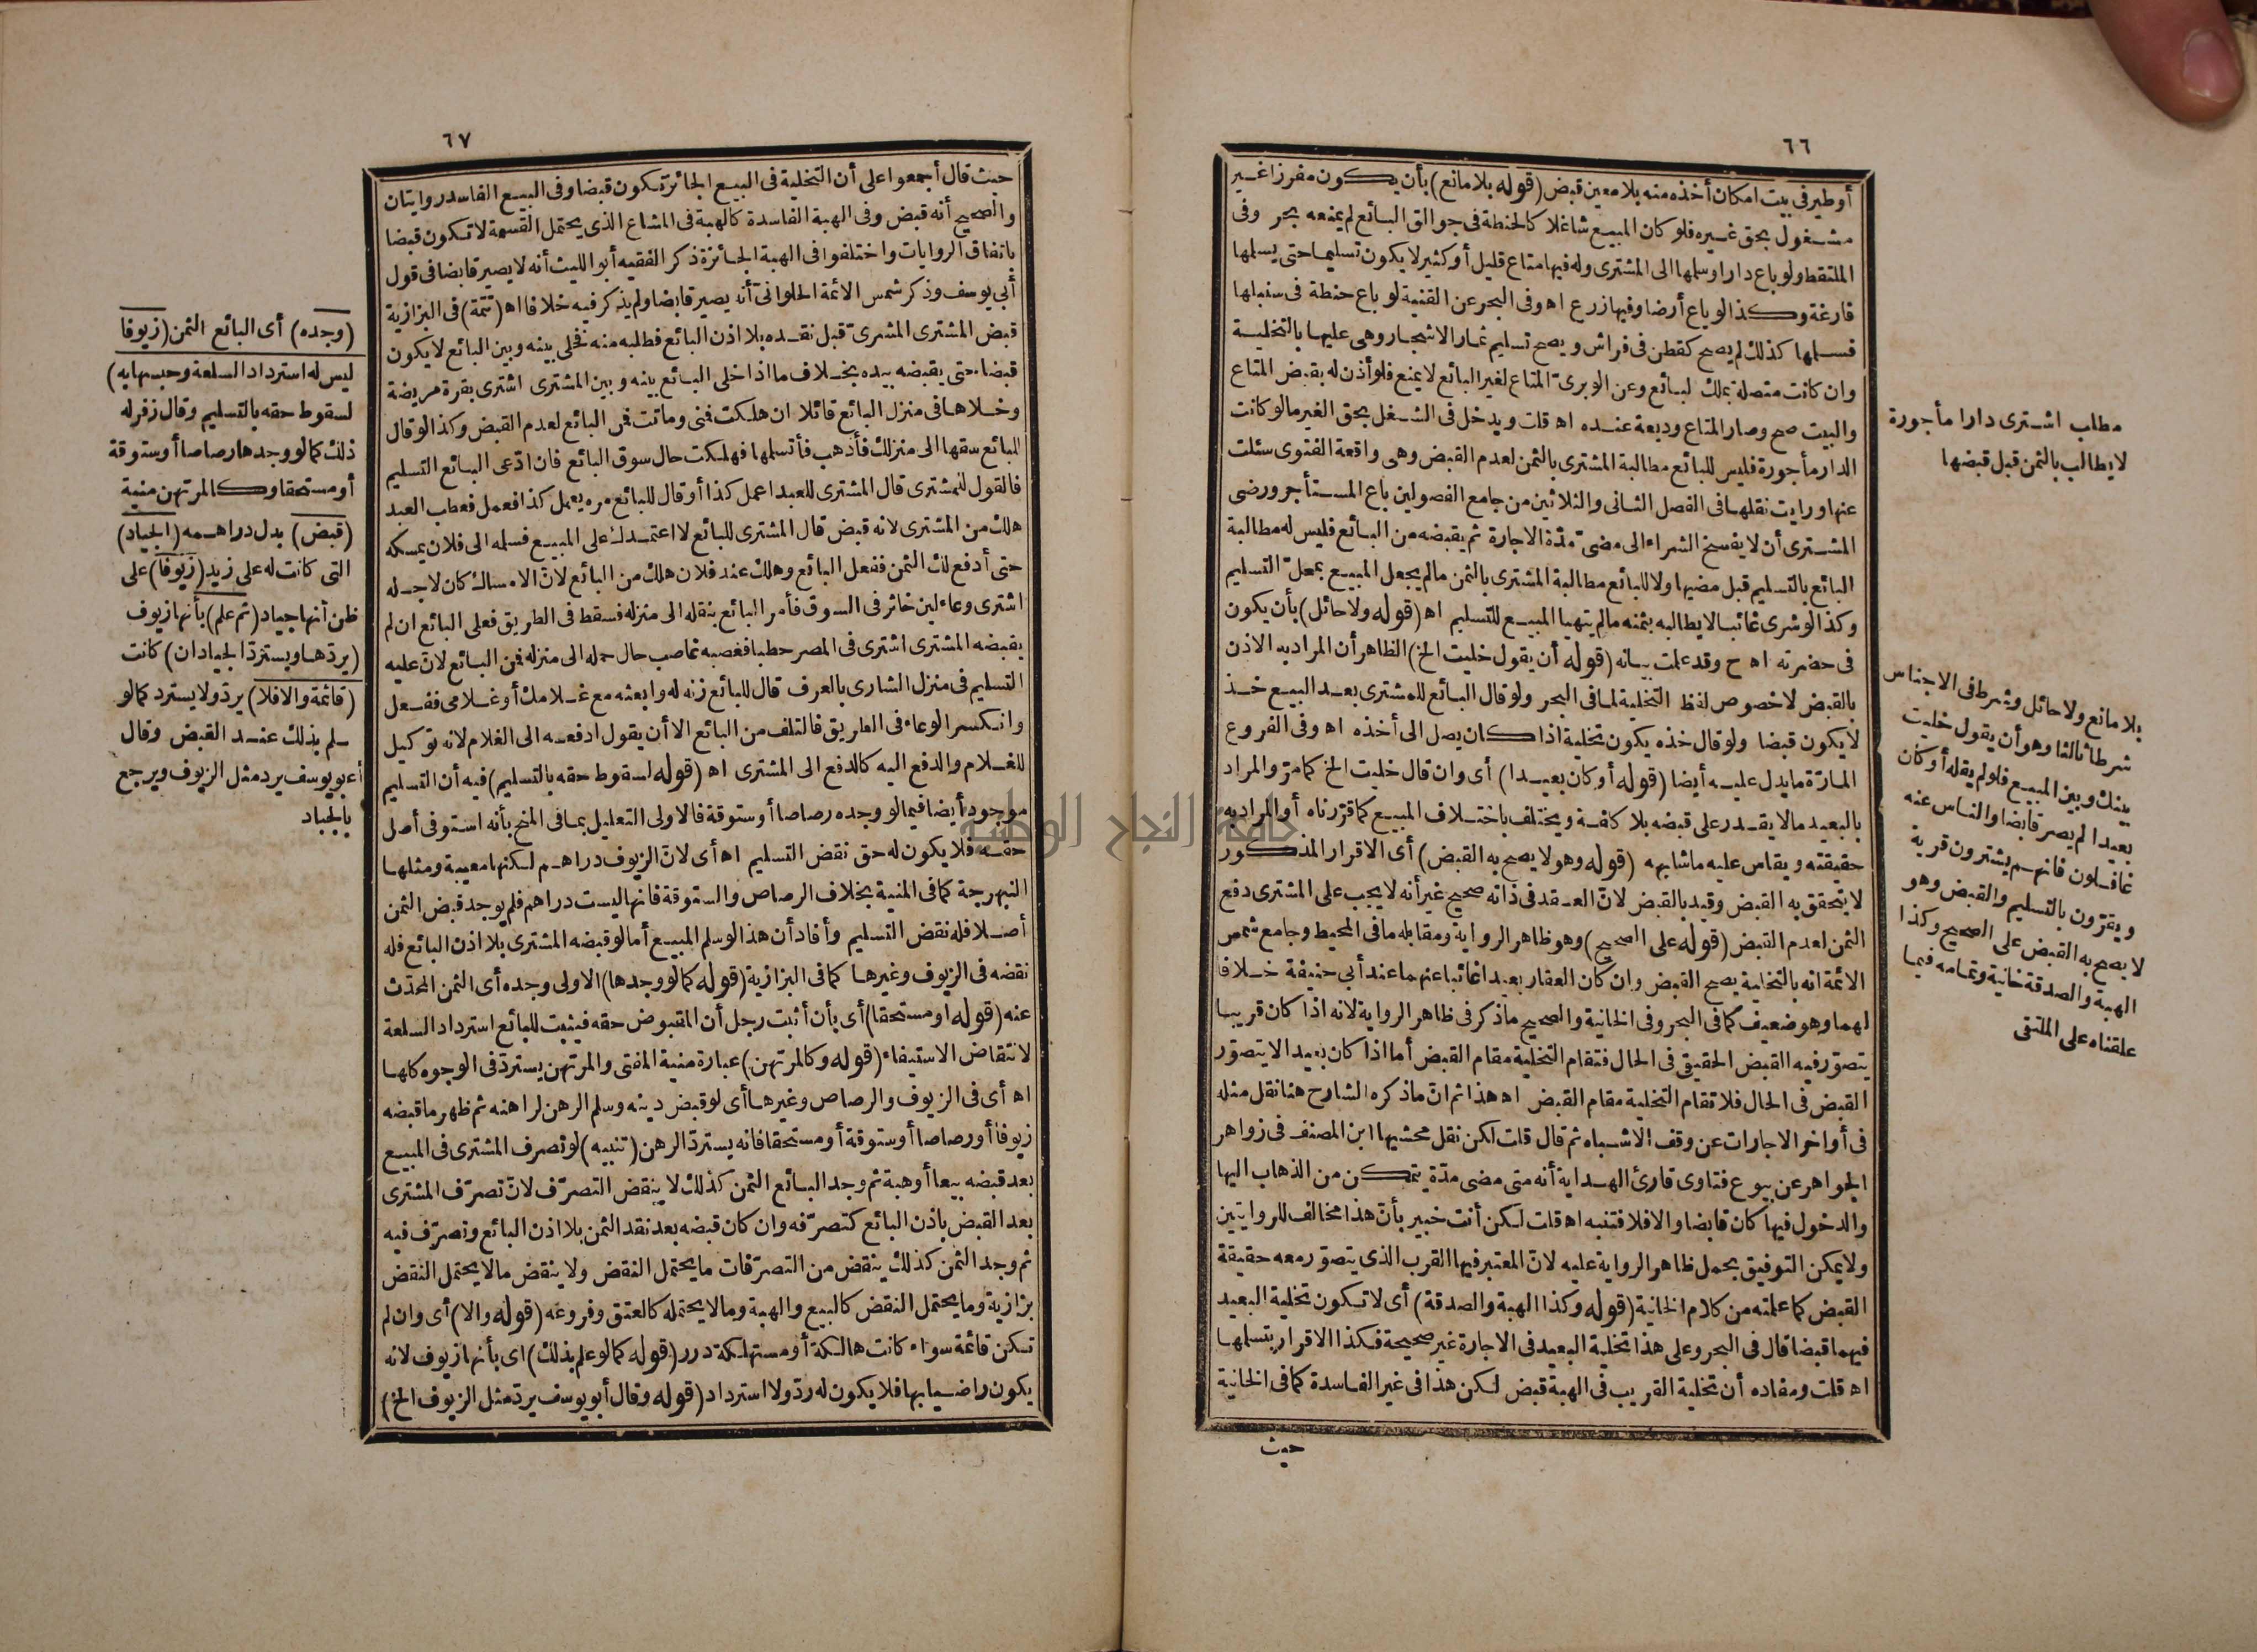 ٦٦
أو طير في بيت امكان أخذه منه بلا معين قبض (قوله بلا مانع) بأن يكون مفرزا غير
مشغول بحق غيره فلو كان المبيع شاغلا كالحنطة في جوالق البائع لم يمنعه بحر وفى
الملتقط ولو باع دارا وسلمها الى المشترى وله فيها متاع قليل أو كثير لا يكون تسليما حتى يسلمها
فارغة وكذا لو باع أرضا وفيها زرع اه وفى البحر عن القنية لو باع حنطة فى سنبلها
فسلمها كذلك لم يصح كقطن فى فراش ويصح تسليم ثمار الاشجار وهى عليها بالتخلية
وان كانت متصلة بملك البائع وعن الوبرىّ المتاع لغير البائع لا يمنع فلو أذن له بقبض المتاع
والبيت صح وصار المتاع وديعة عنده اه قلت ويدخل فى الشغل بحق الغير مالو كانت
الدار مأجورة فليس للبائع مطالبة المشترى بالثمن لعدم القبض وهى واقعة الفتوى سئلت
عنها ورايت نقلها فى الفصل الثانى والثلاثين من جامع الفصولين باع المستأجر ورضى
المشترى أن لا يفسخ الشراء الى مضىّ مدّة الاجارة ثم يقبضه من البائع فليس له مطالبة
البائع بالتسليم قبل مضيها ولا للبائع مطالبة المشترى بالثمن مالم يجعل المبيع بمحلّ التسليم
وكذا لو شرى غائبا لا يطالبه بثمنه مالم يتهيا المبيع للتسليم اه (قوله ولا حائل) بأن يكون
فى حضرته اه ح وقد علمت بيانه (قوله أن يقول خليت الخ) الظاهر أن المراد به الاذن
بالقبض لا خصوص لفظ التخلية لما فى البحر ولو قال البائع للمشترى بعد البيع خذ
لا يكون قبضا ولو قال خذه يكون تخلية اذا كان يصل الى أخذه اه وفى الفروع
المارّة ما يدل عليه أيضا (قوله أو كان بعيدا) أى وان قال خليت الخ كما مرّ والمراد
بالبعيد مالا يقدر على قبضه بلا كلفة ويختلف باختلاف المبيع كما قررناه أو المراد به
حقيقته ويقاس عليه ما شابهه (قوله وهو لا يصح به القبض) أى الاقرار المذكور
لا يتحقق به القبض وقيد بالقبض لانّ العقد فى ذاته صحيح غير أنه لا يجب على المشترى دفع
الثمن لعدم القبض (قوله على الصحيح) وهو ظاهر الرواية ومقابله ما فى المحيط وجامع شمس
الائمة انه بالتخلية يصح القبض وان كان العقار بعيدا غائبا عنهما عند أبى حنيفة خلافا
لهما وهو ضعيف كما فى البحر وفى الخانية والصحيح ما ذكر فى ظاهر الرواية لانه اذا كان قريبا
يتصوّر فيه القبض الحقيقى فى الحال فتقام التخلية مقام القبض أما اذا كان بعيدا لا يتصوّر
القبض فى الحال فلا تقام التخلية مقام القبض اه هذا ثم انّ ما ذكره الشارح هنا نقل مثله
فى أواخر الاجارات عن وقف الاشباه ثم قال قلت لكن نقل محشيها ابن المصنف فى زواهر
الجواهر عن بيوع فتاوى قارئ الهداية أنه متى مضى مدّة يتمكن من الذهاب اليها
والدخول فيها كان قابضا والا فلا فتنبه اه قلت لكن أنت خبير بأنّ هذا مخالف للروايتين
ولا يمكن التوفيق بحمل ظاهر الرواية عليه لانّ المعتبر فيها القرب الذى يتصوّر معه حقيقة
القبض كما علمته من كلام الخانية (قوله وكذا الهبة والصدقة) أى لا تكون تخلية البعيد
فيهما قبضا قال فى البحر وعلى هذا تخلية البعيد فى الاجارة غير صحيحة فكذا الاقرار بتسلمها
اه قلت ومفاده أن تخلية القريب فى الهبة قبض لكن هذا فى غير الفاسدة كما فى الخانية
حيث
مطلب اشترى دارا مأجورة
لا يطالب بالثمن قبل قبضها
بلا مانع ولا حائل وشرط فى الاجناس
شرطا ثالثا وهو أن يقول خليت
بينك وبين المبيع فلو لم يقله أو كان
بعيدا لم يصر قابضا والناس عنه
غافلون فانهم يشترون قرية
ويقرّون بالتسليم والقبض وهو
لا يصح به القبض على الصحيح وكذا
الهبة والصدقة خانية وتمامه فيما
علقناه على الملتقى
٦٧
حيث قال أجمعوا على أن التخلية فى البيع الجائز تكون قبضا وفى البيع الفاسد روايتان
والصحيح أنه قبض وفى الهبة الفاسدة كالهبة فى المشاع الذى يحتمل القسمة لا تكون قبضا
باتفاق الروايات واختلفوا فى الهبة الجائزة ذكر الفقيه أبو الليث أنه لا يصير قابضا فى قول
أبى يوسف وذكر شمس الائمة الحلوانىّ أنه يصير قابضا ولم يذكر فيه خلافا اه (تتمّة) فى البزازية
قبض المشترى المشرىّ قبل نقده بلا اذن البائع فطلبه منه فخلى بينه وبين البائع لا يكون
قبضا حتى يقبضه بيده بخلاف ما اذا خلى البائع بينه وبين المشترى اشترى بقرة مريضة
وخلاها فى منزل البائع قائلا ان هلكت فمنى وماتت فمن البائع لعدم القبض وكذا لو قال
للبائع سقها الى منزلك فأذهب فأتسلمها فهلكت حال سوق البائع فان ادّعى البائع التسليم
فالقول للمشترى قال المشترى للعبد اعمل كذا أو قال للبائع مره يعمل كذا فعمل فعطب العبد
هلك من المشترى لانه قبض قال المشترى للبائع لا اعتمدك على المبيع فسلمه الى فلان يمسكه
حتى أدفع لك الثمن ففعل البائع وهلك عند فلان هلك من البائع لانّ الامساك كان لاجله
اشترى وعاء لبن خاثر فى السوق فأمر البائع بنقله الى منزله فسقط فى الطريق فعلى البائع ان لم
يقبضه المشترى اشترى فى المصر حطبا فغصبه غاصب حال حمله الى منزله فمن البائع لانّ عليه
التسليم فى منزل الشارى بالعرف قال للبائع زنه له وابعثه مع غلامك أو غلامى ففعل
وانكسر الوعاء فى الطريق فالتلف من البائع الا أن يقول ادفعه الى الغلام لانه توكيل
للغلام والدفع اليه كالدفع الى المشترى اه (قوله لسقوط حقه بالتسليم) فيه أن التسليم
موجود أيضا فيما لو وجده رصاصا أو ستوقة فالاولى التعليل بما فى المنح بأنه استوفى أصل
حقه فلا يكون له حق نقض التسليم اه أى لانّ الزيوف دراهم لكنها معيبة ومثلها
النبهرجة كما فى المنية بخلاف الرصاص والستوقة فانها ليست دراهم فلم يوجد قبض الثمن
أصلا فله نقض التسليم وأفاد أن هذا لو سلم المبيع أما لو قبضه المشترى بلا اذن البائع فله
نقضه فى الزيوف وغيرها كما فى البزازية (قوله كما لو وجدها) الاولى وجده أى الثمن المحدّث
عنه (قوله او مستحقا) أى بأن أثبت رجل أن المقبوض حقه فيثبت للبائع استرداد السلعة
لانتقاض الاستيفاء (قوله وكالمرتهن) عبارة منية المفتى والمرتهن يستردّ فى الوجوه كلها
اه أى فى الزيوف والرصاص وغيرها أى لو قبض دينه وسلم الرهن لراهنه ثم ظهر ما قبضه
زيوفا أو رصاصا أو ستوقة أو مستحقا فانه يستردّ الرهن (تنبيه) لو تصرف المشترى فى المبيع
بعد قبضه بيعا أو هبة ثم وجد البائع الثمن كذلك لا ينقض التصرّف لانّ تصرّف المشترى
بعد القبض باذن البائع كتصرّفه وان كان قبضه بعد نقد الثمن بلا اذن البائع وتصرّف فيه
ثم وجد الثمن كذلك ينقض من التصرّفات ما يحتمل النقض ولا ينقض مالا يحتمل النقض
بزازية وما يحتمل النقض كالبيع والهبة ومالا يحتمله كالعتق وفروعه (قوله والا) أى وان لم
تكن قائمة سواء كانت هالكة أو مستهلكة درر (قوله كما لو علم بذلك) اى بأنها زيوف لانه
يكون راضيا بها فلا يكون له ردّ ولا استرداد (قوله وقال أبو يوسف يردّ مثل الزيوف الخ)
(وجده) أى البائع الثمن (زيوفا
ليس له استرداد السلعة وحبسها به)
لسقوط حقه بالتسليم وقال زفر له
ذلك كما لو وجدها رصاصا أو ستوقة
أو مستحقا وكالمرتهن منية
(قبض) بدل دراهمه (الجياد)
التى كانت له على زيد (زيوفا) على
ظن أنها جياد (ثم علم) بأنها زيوف
(يردّها ويستردّ الجياد ان) كانت
(قائمة والا فلا) يردّ ولا يسترد كما لو
علم بذلك عند القبض وقال
أبو يوسف يرد مثل الزيوف ويرجع
بالجياد
جامعة النجاح الوطنية